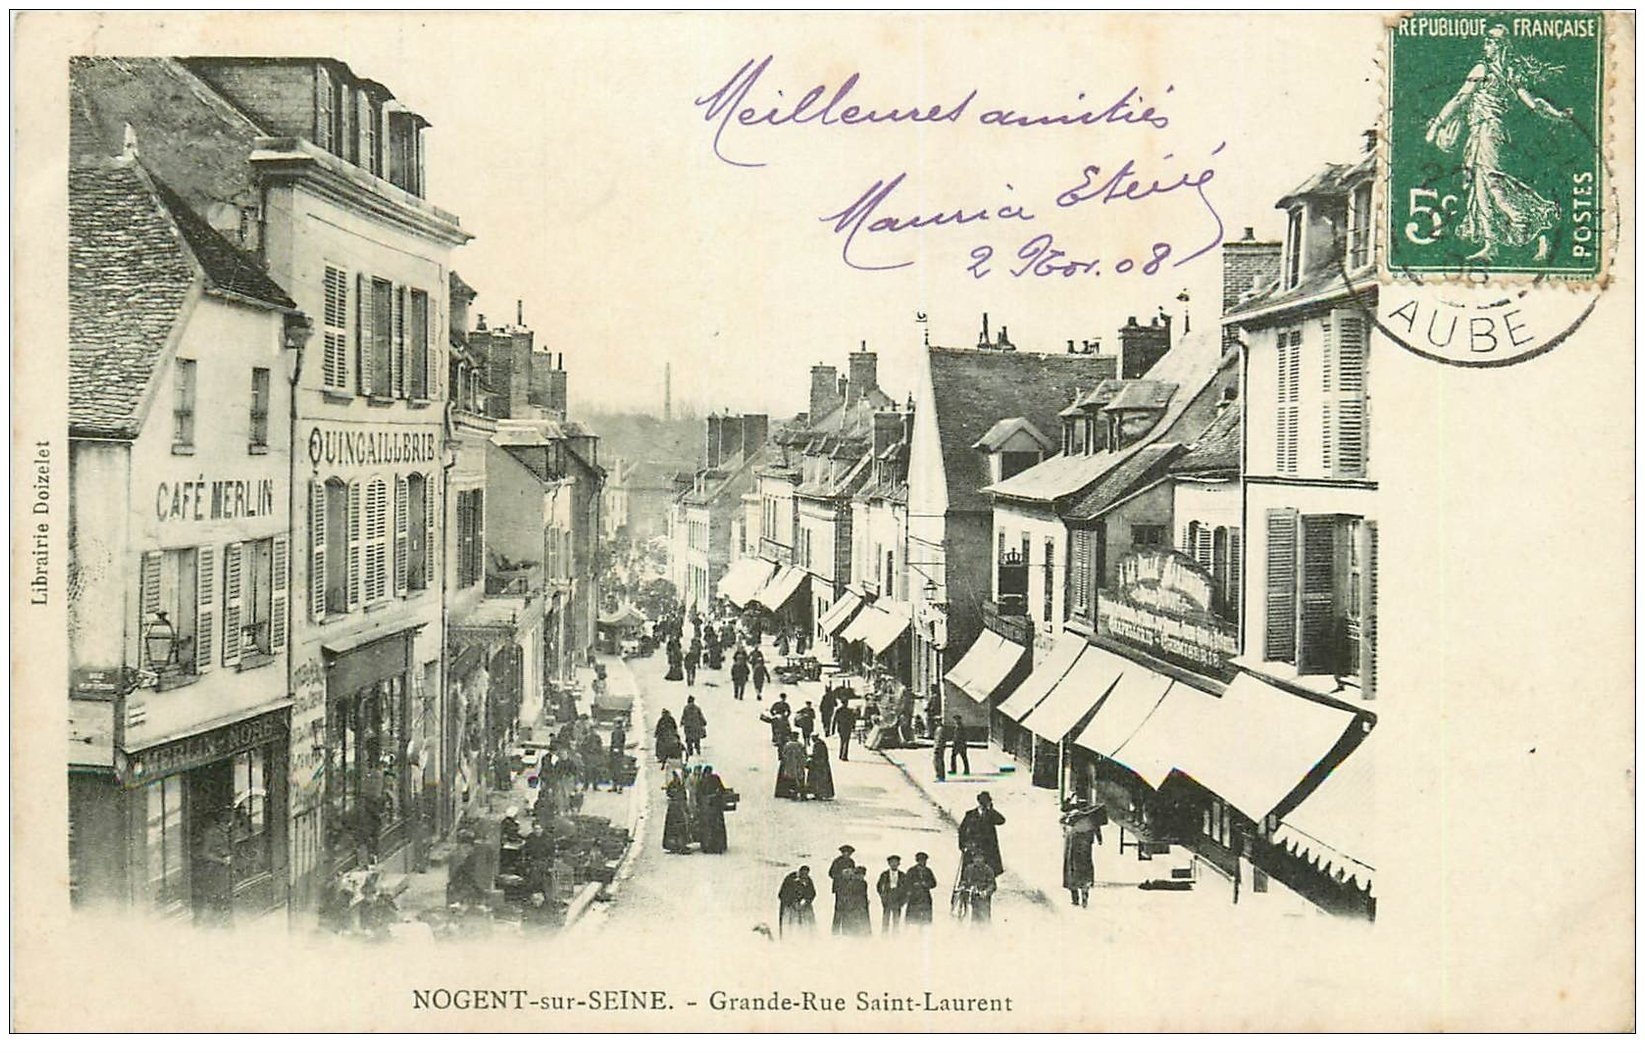 Meilleures amitiés
Maurice
2 Nov. 08
RÉPUBLIQUE FRANÇAISE
5c
POSTES
AUBE
QUINCAILLERIE
CAFÉ MERLIN
MERLIN
Librairie Doizelet
NOGENT-sur-SEINE. - Grande-Rue Saint-Laurent